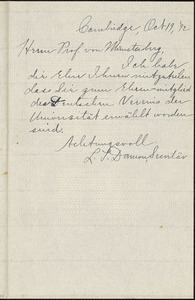 Cambridge, Oct 19, 92
Herrn Prof von Münsterberg,
Ich habe
die Ehre Ihnen mitzuteilen
dass Sie zum Ehren-mitglied
des Deutschen Vereins der
Universität erwählt worden
sind.
Achtungsvoll
L. T. Damon Secretär